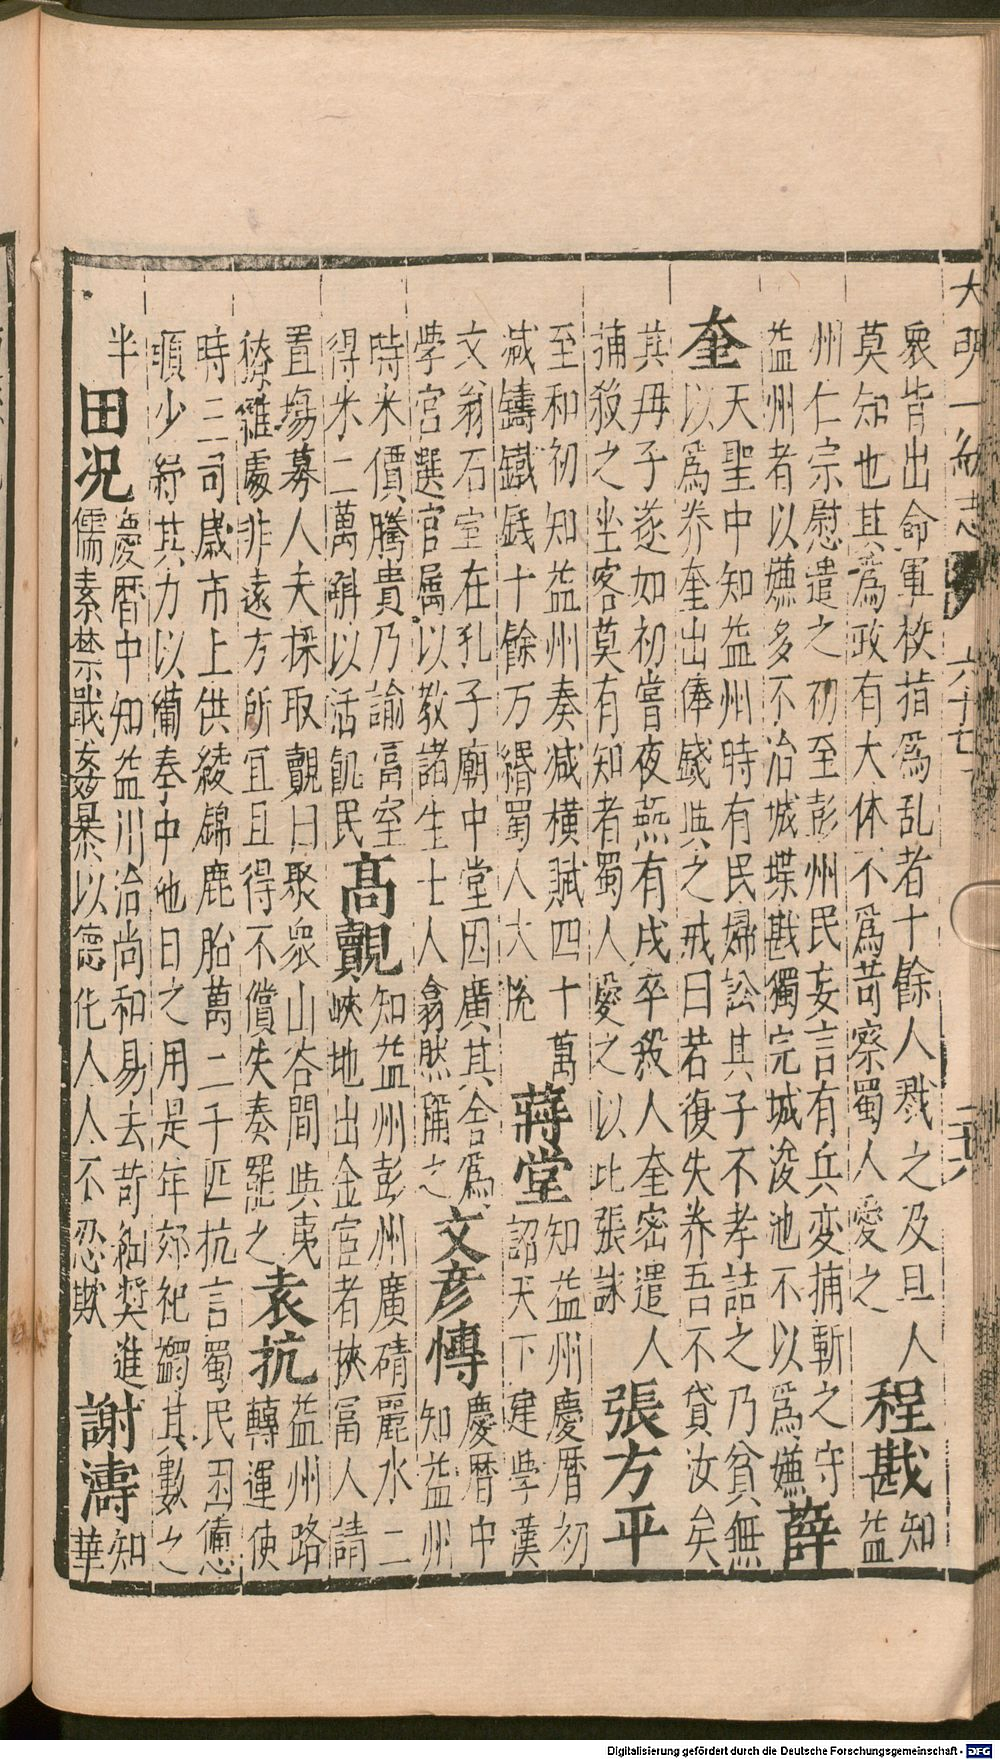 大明一統志 卷六十七 二六
眾皆出命軍校指為乱者十餘人戮之及旦人
莫知也其為政有大体不為苛察蜀人愛之
程戡
知
益
州仁宗慰遣之初至彭州民妄言有兵变捕斬之守
益州者以嫌多不治城堞戡獨完城浚池不以為嫌
薛
奎
天聖中知益州時有民婦訟其子不孝詰之乃貧無
以為养奎出俸錢與之戒曰若復失养吾不貸汝矣
其毋子遂如初嘗夜燕有戍卒殺人奎密遣人
捕殺之坐客莫有知者蜀人愛之以比張詠
張方平
至和初知益州奏减橫賦四十萬
减鑄鐵錢十餘万緡蜀人大悅
蔣堂
知益州慶曆初
詔天下建學漢
文翁石室在孔子廟中堂因廣其舍為
學宮選官属以教諸生士人翕然稱之
文彥博
慶曆中
知益州
時米價騰貴乃諭富室
得米二萬斛以活飢民
高覿
知益州彭州廣磧麗水二
峽地出金宦者挾富人請
置場募人夫採取覿曰聚眾山谷間與夷
獠雜處非遠方所宜且得不償失奏罷之
袁抗
益州路
轉運使
時三司歲市上供綾錦鹿胎萬二千匹抗言蜀民困憊
願少紓其力以備奉中他日之用是年郊祀蠲其數之
半
田况
慶曆中知益州治尚和易去苛細獎進
儒素禁戢姦暴以德化人人不忍欺
謝濤
知
華
Digitalisierung gefördert durch die Deutsche Forschungsgemeinschaft - DFG